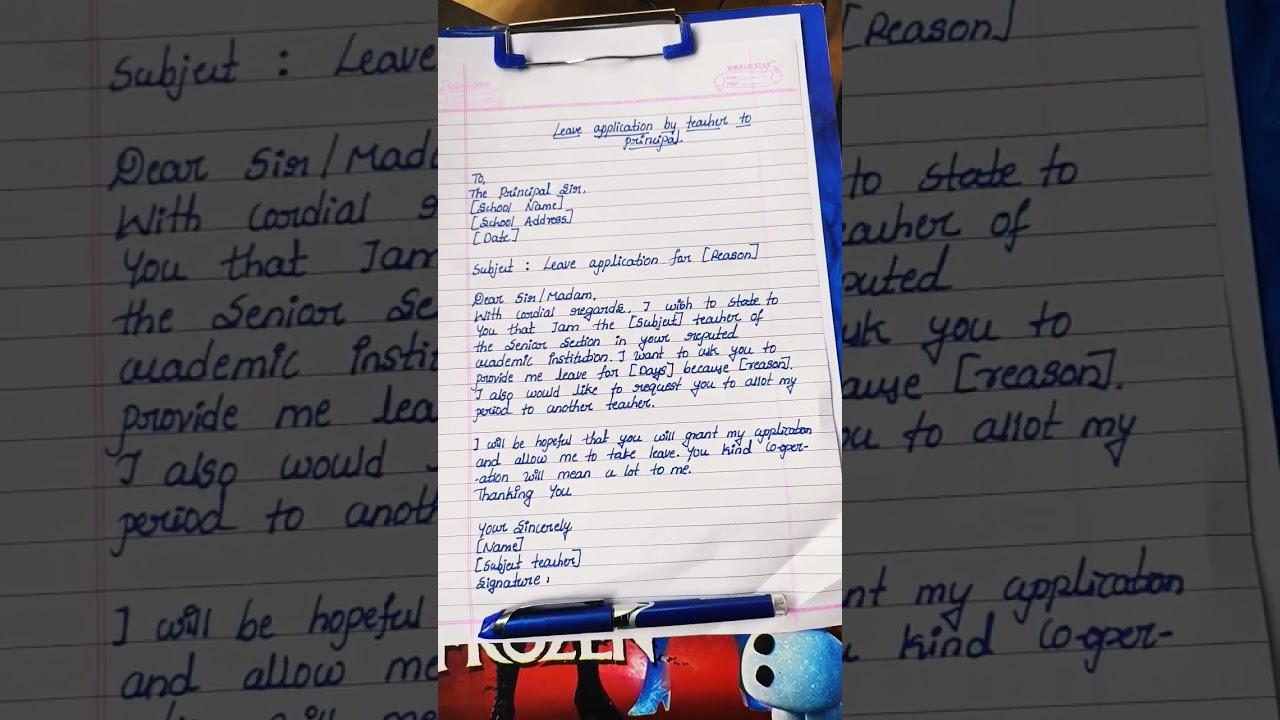 Leave application by teacher to
principal.
To,
The Principal Sir,
[School Name]
[School Address]
[Date]
Subject : Leave application for [Reason]
Dear Sir/Madam,
With cordial regards, I wish to state to
You that Iam the [Subject] teacher of
the Senior Section in your reputed
academic institution. I want to ask you to
provide me leave for [Days] because [reason].
I also would like to request you to allot my
period to another teacher.
I will be hopeful that you will grant my application
and allow me to take leave. You kind co-oper-
-ation will mean a lot to me.
Thanking You
Your Sincerely
[Name]
[Subject teacher]
Signature :
FROZEN